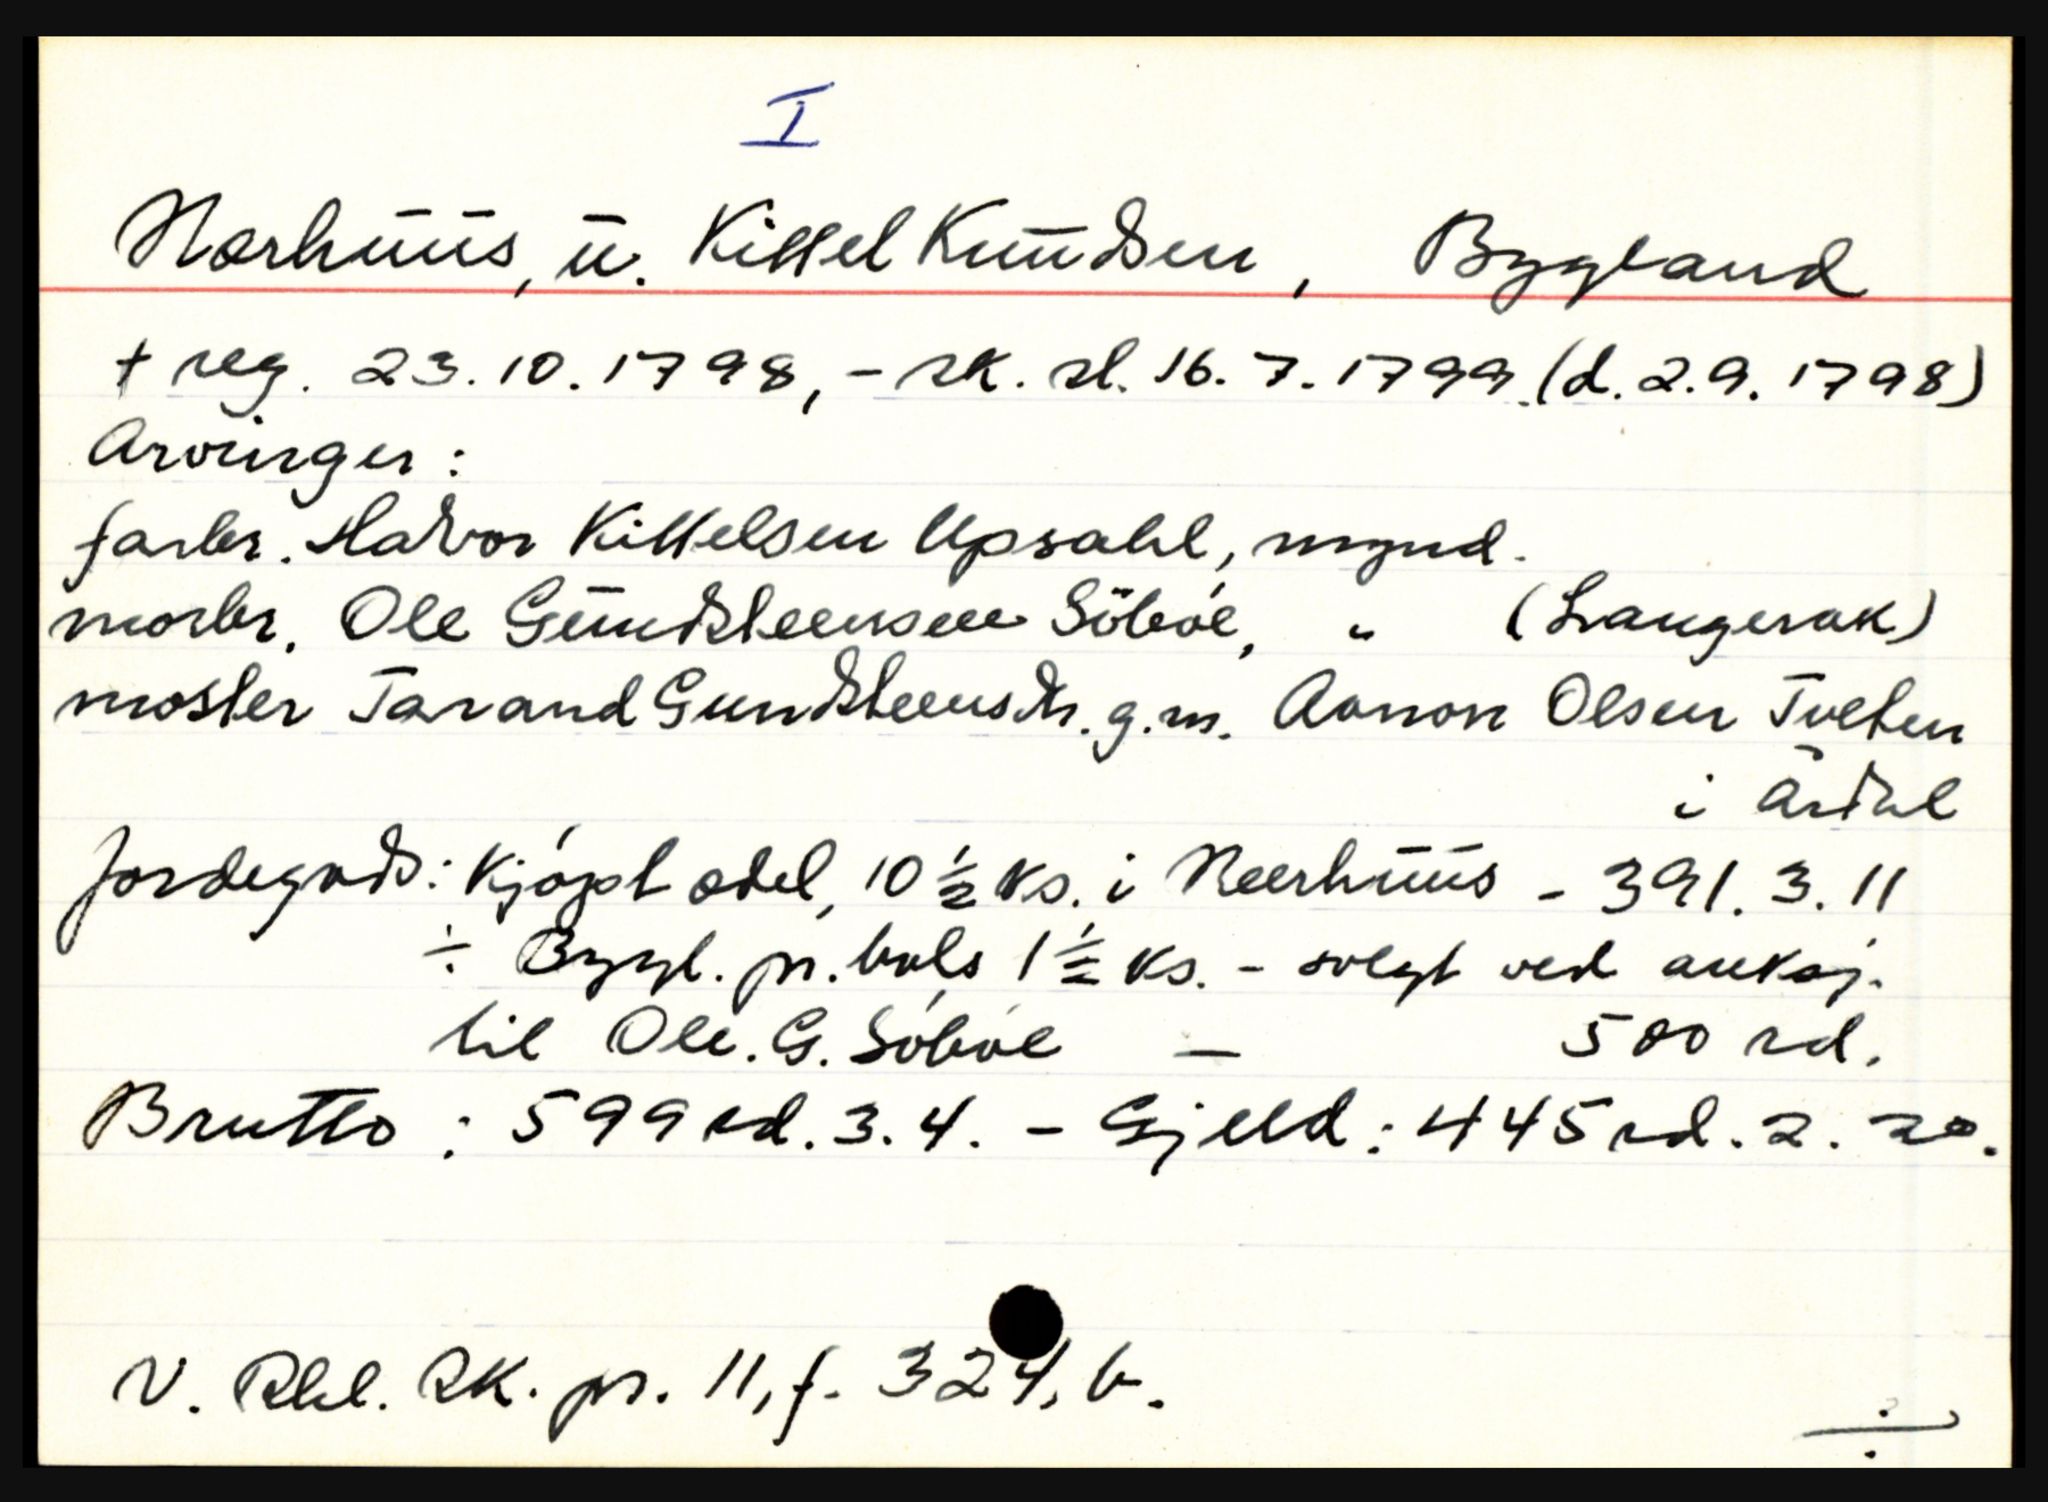 I
Nærhūūs, ū. Kittel Knūdsen, Bygland
† reg. 23.10.1798, - sk. sl. 16.7.1799. (d. 2.9.1798)
Arvinger:
farbr. Halvor Kittelsen Upsahl, mynd.
morbr. Ole Gūndsteensen Söbøe, " (Langerak)
moster Tarand Gundsteensdtr. g.m. Aanon Olsen Tveten
i Årdal
Jordegods: Kjøpt odel, 10 ½ ks. i Neerhūūs - 391.3.11
÷ Bygl. pr. bols 1 ½ ks. - solgt ved auksj.
til Ole. G. Söbøe — 500 rd.
Brutto: 599 rd. 3.4. - Gjeld: 445 rd. 2. 20.
V. Rbl. SK. pr. 11, f. 324, b.
÷